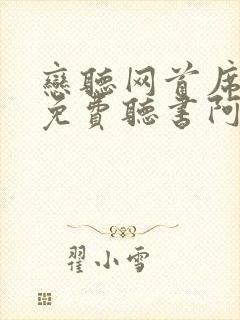 戀聽网首席
免費聽書阿
翟小雪